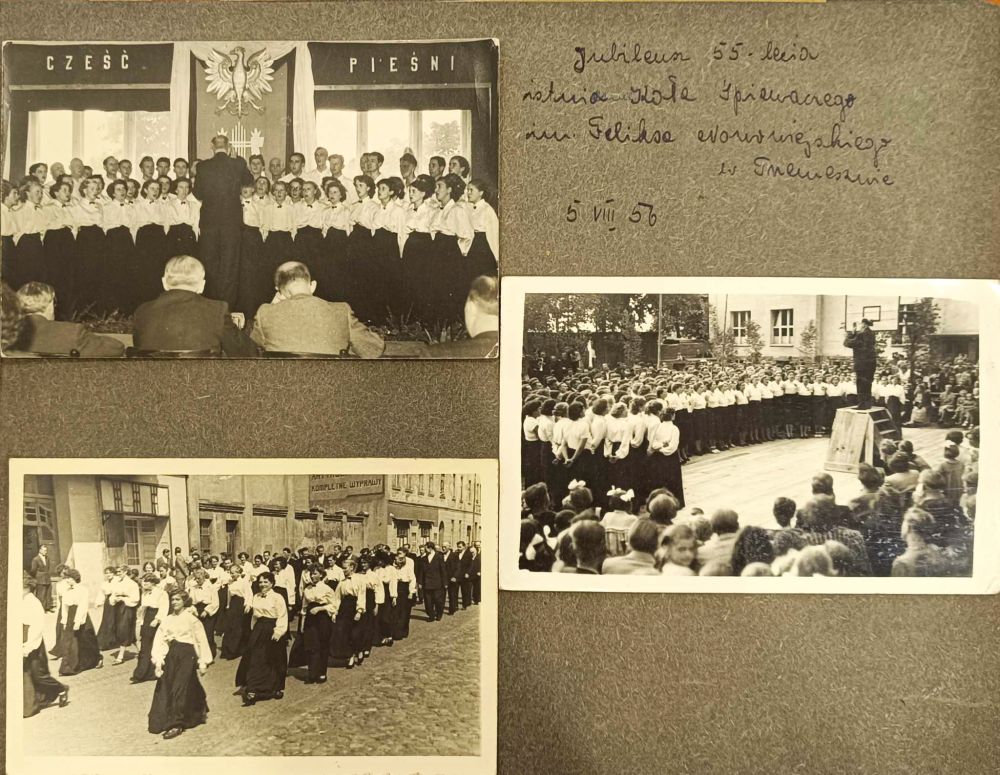 CZEŚĆ PIEŚNI
Jubileusz 55-lecia
istnienia Koła Śpiewaczego
im. Feliksa Nowowiejskiego
w Trzemesznie
5 VIII 56
KOMPLETNE WYPRAWY